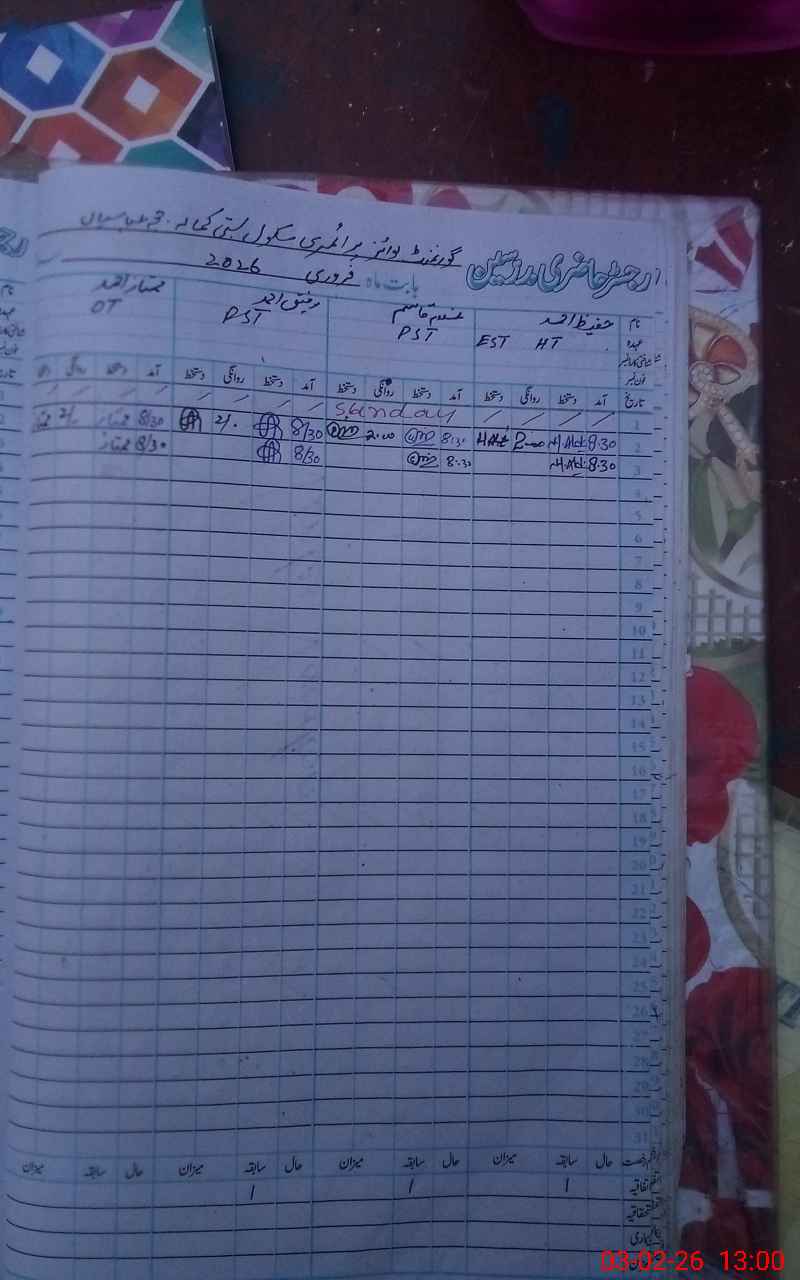 رجسٹر حاضری مدرسین گورنمنٹ بوائز پرائمری سکول بستی
بابت ماہ فروری 2026
نام حفیظ احمد غلام قاسم رفیق احمد ممتاز احمد
عہدہ EST HT PST PST OT
فون نمبر
تاریخ آمد دستخط روانگی دستخط آمد دستخط روانگی دستخط آمد دستخط روانگی دستخط آمد دستخط روانگی
1 / / / / Sunday / / / / / / / /
2 8:30 2:00 8:30 2:00 8/30 2/. 8/30 ممتاز 2/.
3 8:30 8:30 8/30 8/30 ممتاز
4
5
6
7
8
9
10
11
12
13
14
15
16
17
18
19
20
21
22
23
24
25
26
27
28
29
30
31
رخصت حال سابقہ میزان حال سابقہ میزان حال سابقہ میزان حال سابقہ میزان
اتفاقیہ 1 1 1
استحقاقیہ
بیماری
03-02-26 13:00